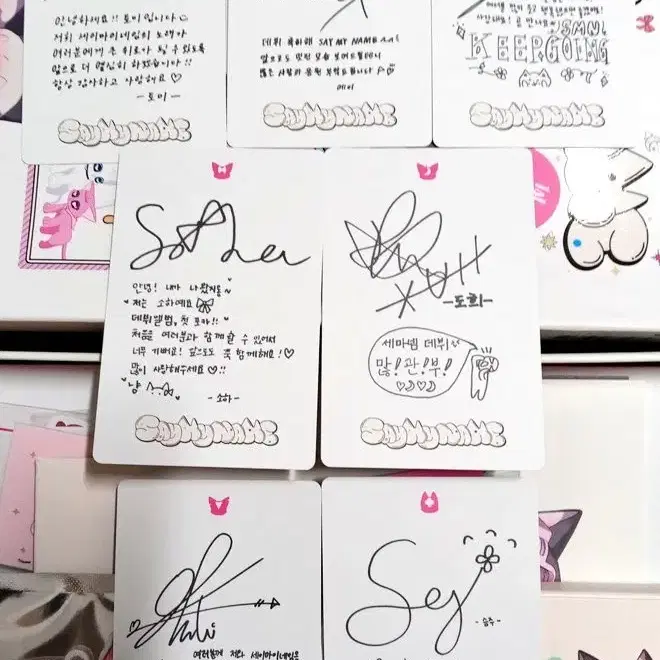 안녕하세요!! 토미 입니다♡
저희 세이마이네임의 노래가
여러분에게 큰 위로가 될 수 있도록
앞으로 더 열심히 하겠습니다!!
항상 감사하고 사랑해요♡
-토미-
SAY MY NAME
데뷔 축하해 SAY MY NAME
앞으로도 멋진 모습 보여드릴테니
많은 사랑과 응원 부탁드립니다
메이
SAY MY NAME
사랑해요!
SMN!
KEEP GOING
SAY MY NAME
Sotha
안녕! 내가 나왔거든~
저는 소하예요
데뷔앨범, 첫 포카!!
처음을 여러분과 함께 할 수 있어서
너무 기뻐요! 앞으로도 쭉 함께해요!♡
많이 사랑해주세요♡!!
냥
-소하-
SAY MY NAME
-도희-
세마넴 데뷔
많!관!부!
SAY MY NAME
여러분께 저와 세이마이네임을
-승주-